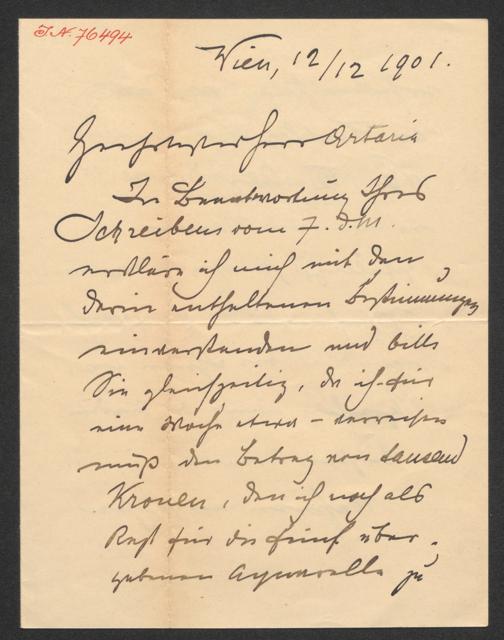 I.N. 76494
Wien, 12/12 1901.
Geehrtester Herr Artaria
In Beantwortung Ihres
Schreibens vom 7. d. M.
erkläre ich mich mit den
darin enthaltenen Bestimmungen
einverstanden und bitte
Sie gleichzeitig, da ich für
eine Woche etwa – verreisen
muß den Betrag von tausend
Kronen, den ich noch als
Rest für die fünf über-
gebenen Aquarelle zu